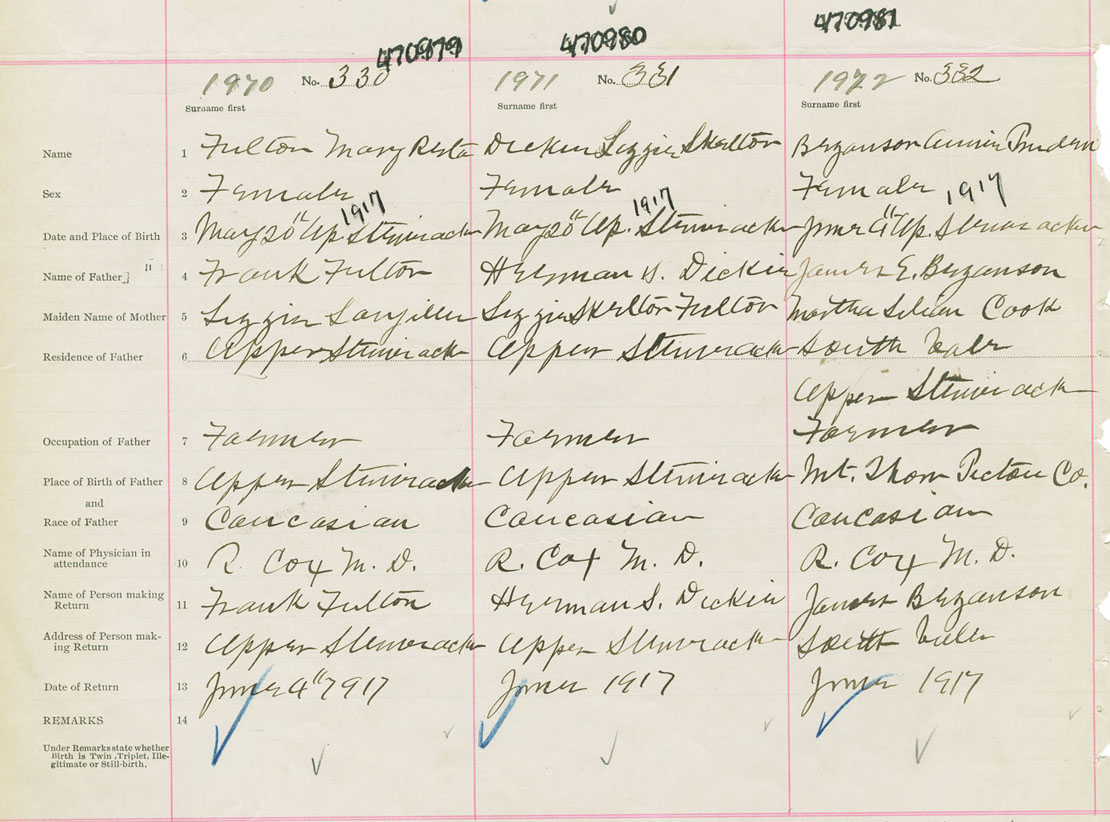 470979 470980 470981
1970 No. 330 1971 No. 331 1972 No. 332
Surname first Surname first Surname first
Name 1 Fulton Mary Reta Dickie Lizzie Skelton Bezanson Annie
Sex 2 Female Female Female
1917 1917 1917
Date and Place of Birth 3 May 20" Up. Stewiacke May 20" Up. Stewiacke June 4" Up. Stewiacke
Name of Father 4 Frank Fulton Herman S. Dickie James E. Bezanson
Maiden Name of Mother 5 Lizzie Lizzie Skelton Fulton Martha Lilian Cook
Residence of Father 6 Upper Stewiacke Upper Stewiacke South Vale
Upper Stewiacke
Occupation of Father 7 Farmer Farmer Farmer
Place of Birth of Father 8 Upper Stewiacke Upper Stewiacke Mt. Thom Pictou Co.
and
Race of Father 9 Caucasian Caucasian Caucasian
Name of Physician in
attendance 10 R. Cox M. D. R. Cox M. D. R. Cox M. D.
Name of Person making
Return 11 Frank Fulton Herman S. Dickie James Bezanson
Address of Person mak-
ing Return 12 Upper Stewiacke Upper Stewiacke South Vale
Date of Return 13 June 4" 1917 June 1917 June 1917
REMARKS 14
Under Remarks state whether
Birth is Twin, Triplet, Ille-
gitimate or Still-birth.